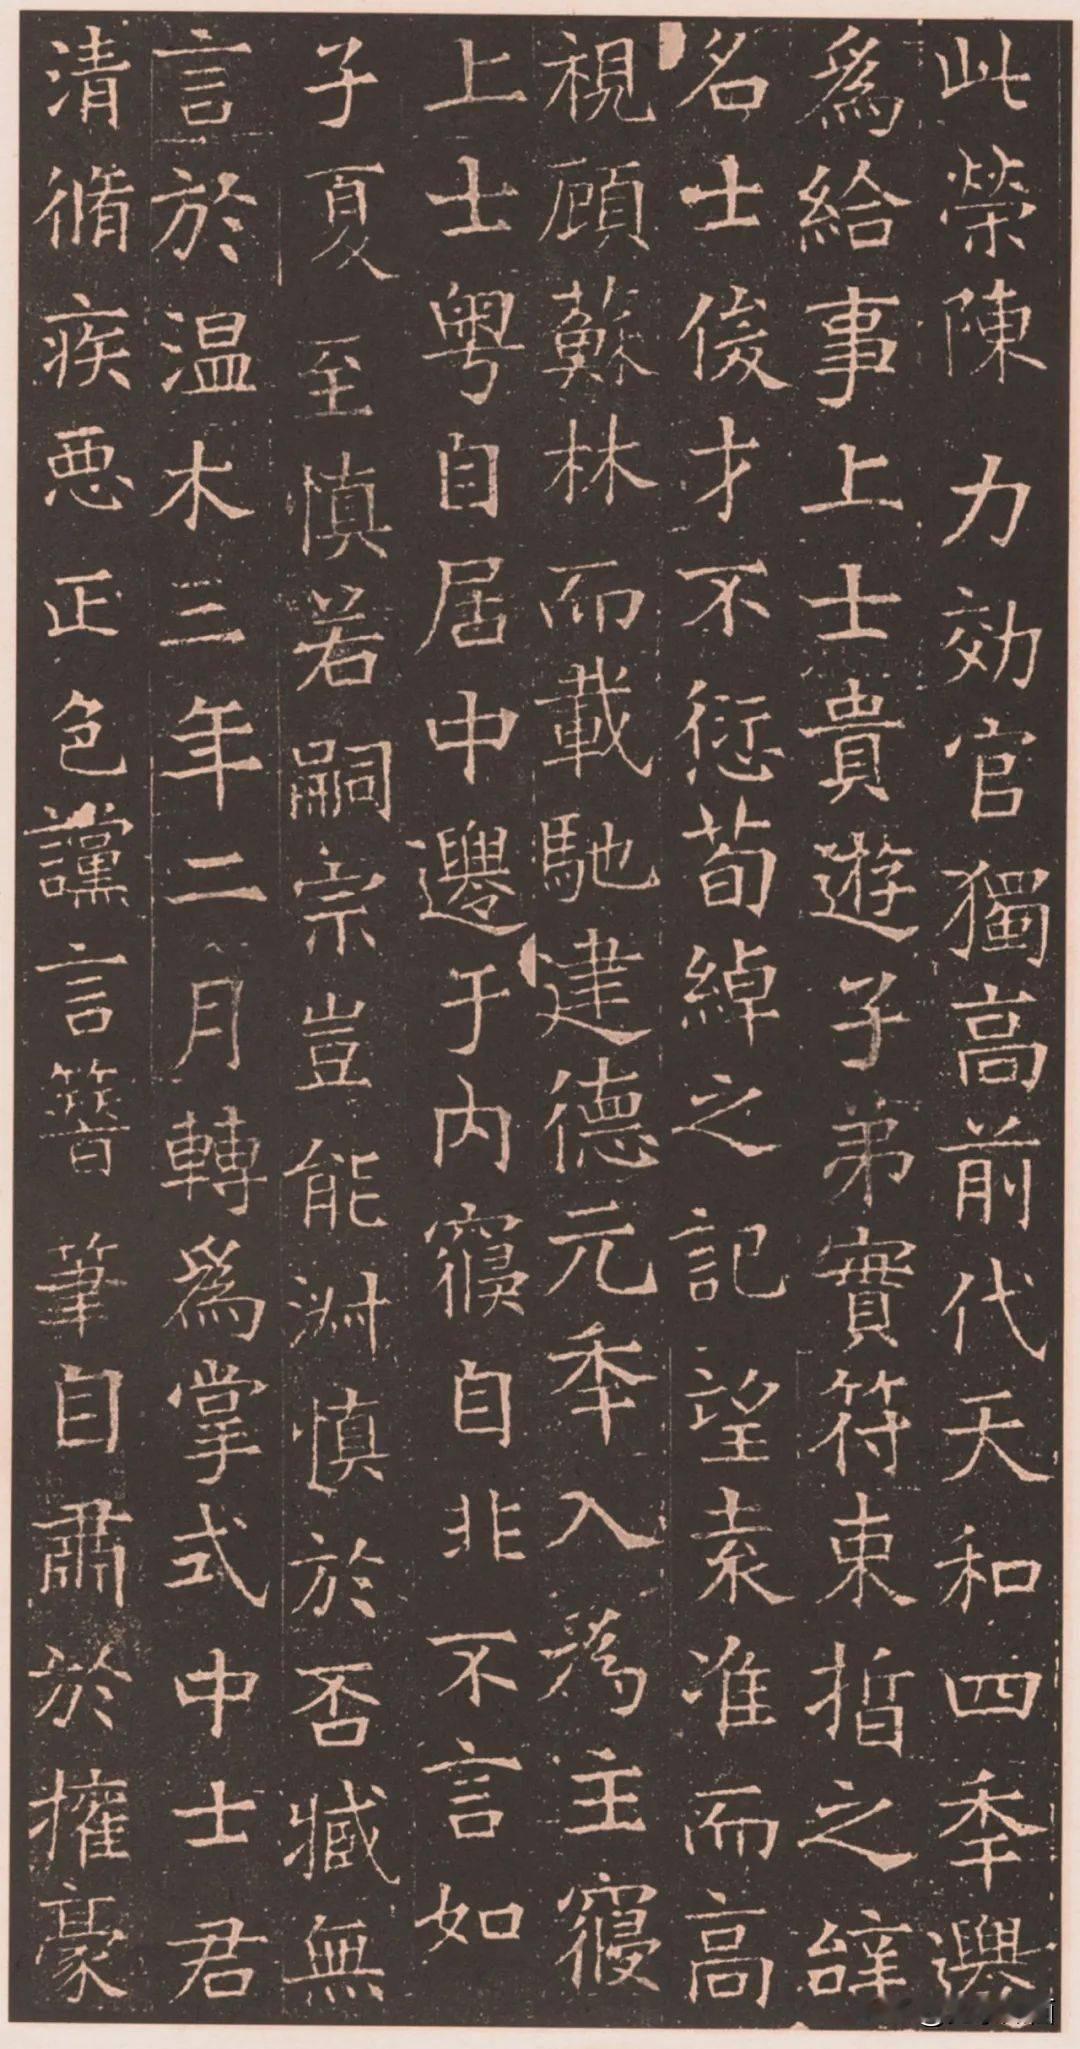 此榮陳力効官獨高前代天和四秊遷
為給事上士貴遊子弟實符束指之辭
名士俊才不愆荀綽之記望素准而高
視顧蘇林而載馳建德元秊入為主寢
上士粵自居中遷于内寢自非不言如
子夏至慎若嗣宗豈能淵慎於否臧無
言於温木三年二月轉為掌式中士君
清脩疾惡正色讜言簪筆自肅於擁豪